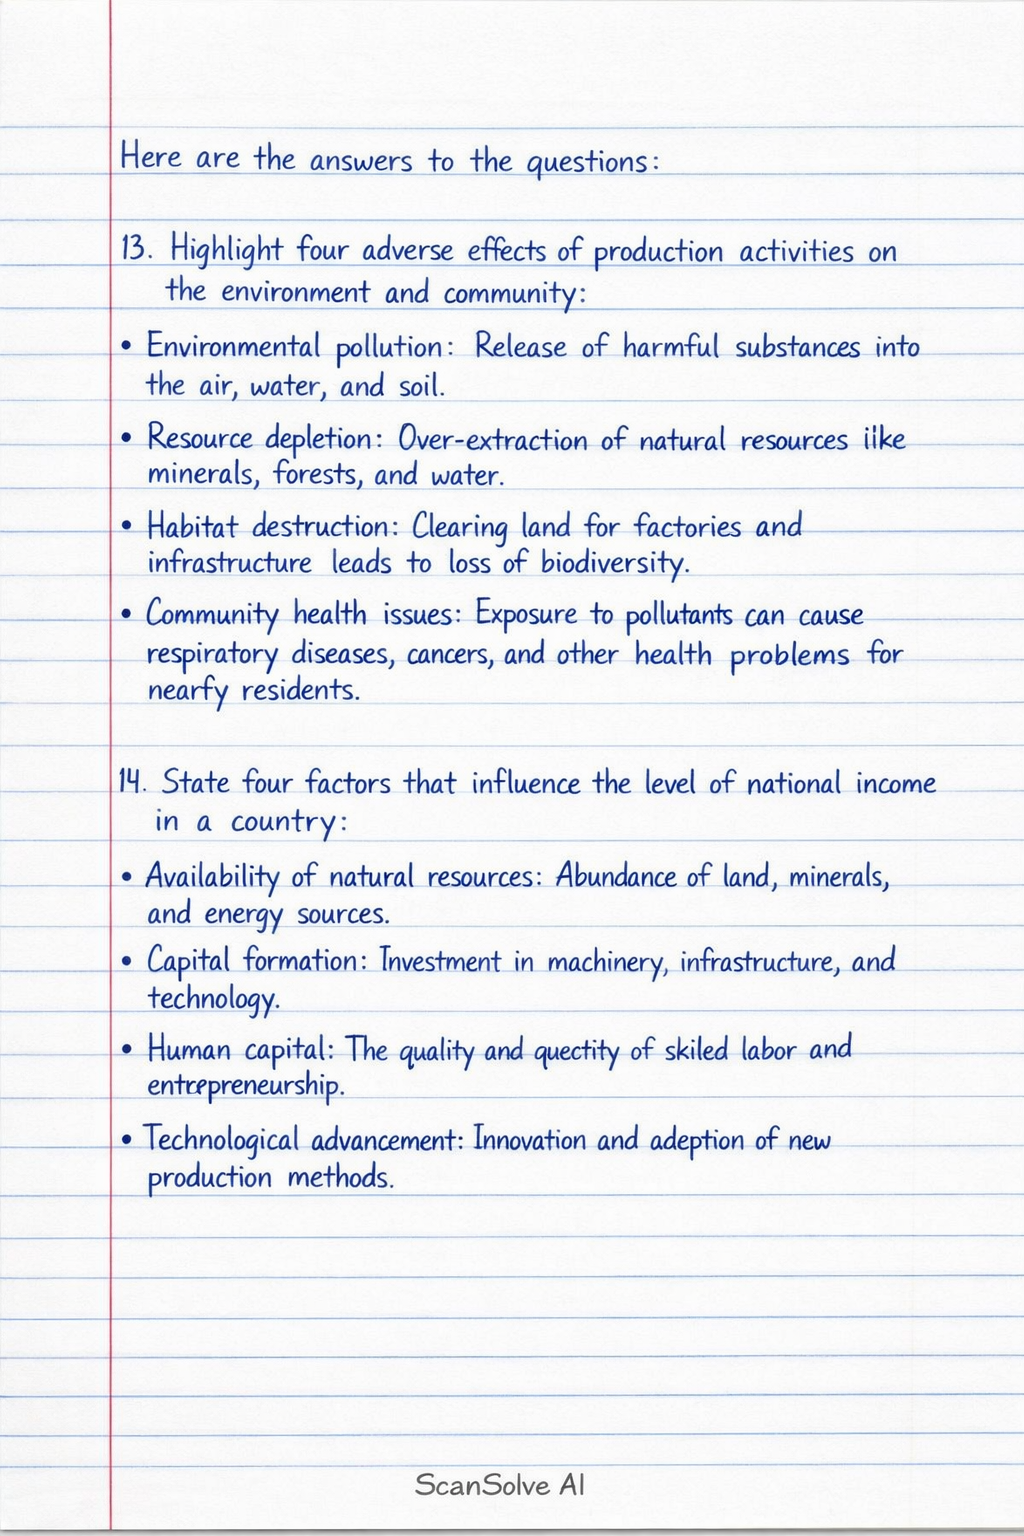 Here are the answers to the questions:
13. Highlight four adverse effects of production activities on
the environment and community:
• Environmental pollution: Release of harmful substances into
the air, water, and soil.
• Resource depletion: Over-extraction of natural resources iike
minerals, forests, and water.
• Habitat destruction: Clearing land for factories and
infrastructure leads to loss of biodiversity.
• Community health issues: Exposure to pollutants can cause
respiratory diseases, cancers, and other health problems for
nearfy residents.
14. State four factors that influence the level of national income
in a country:
• Availability of natural resources: Abundance of land, minerals,
and energy sources.
• Capital formation: Investment in machinery, infrastructure, and
technology.
• Human capital: The quality and quectity of skiled labor and
entrepreneurship.
• Technological advancement: Innovation and adeption of new
production methods.
ScanSolve AI